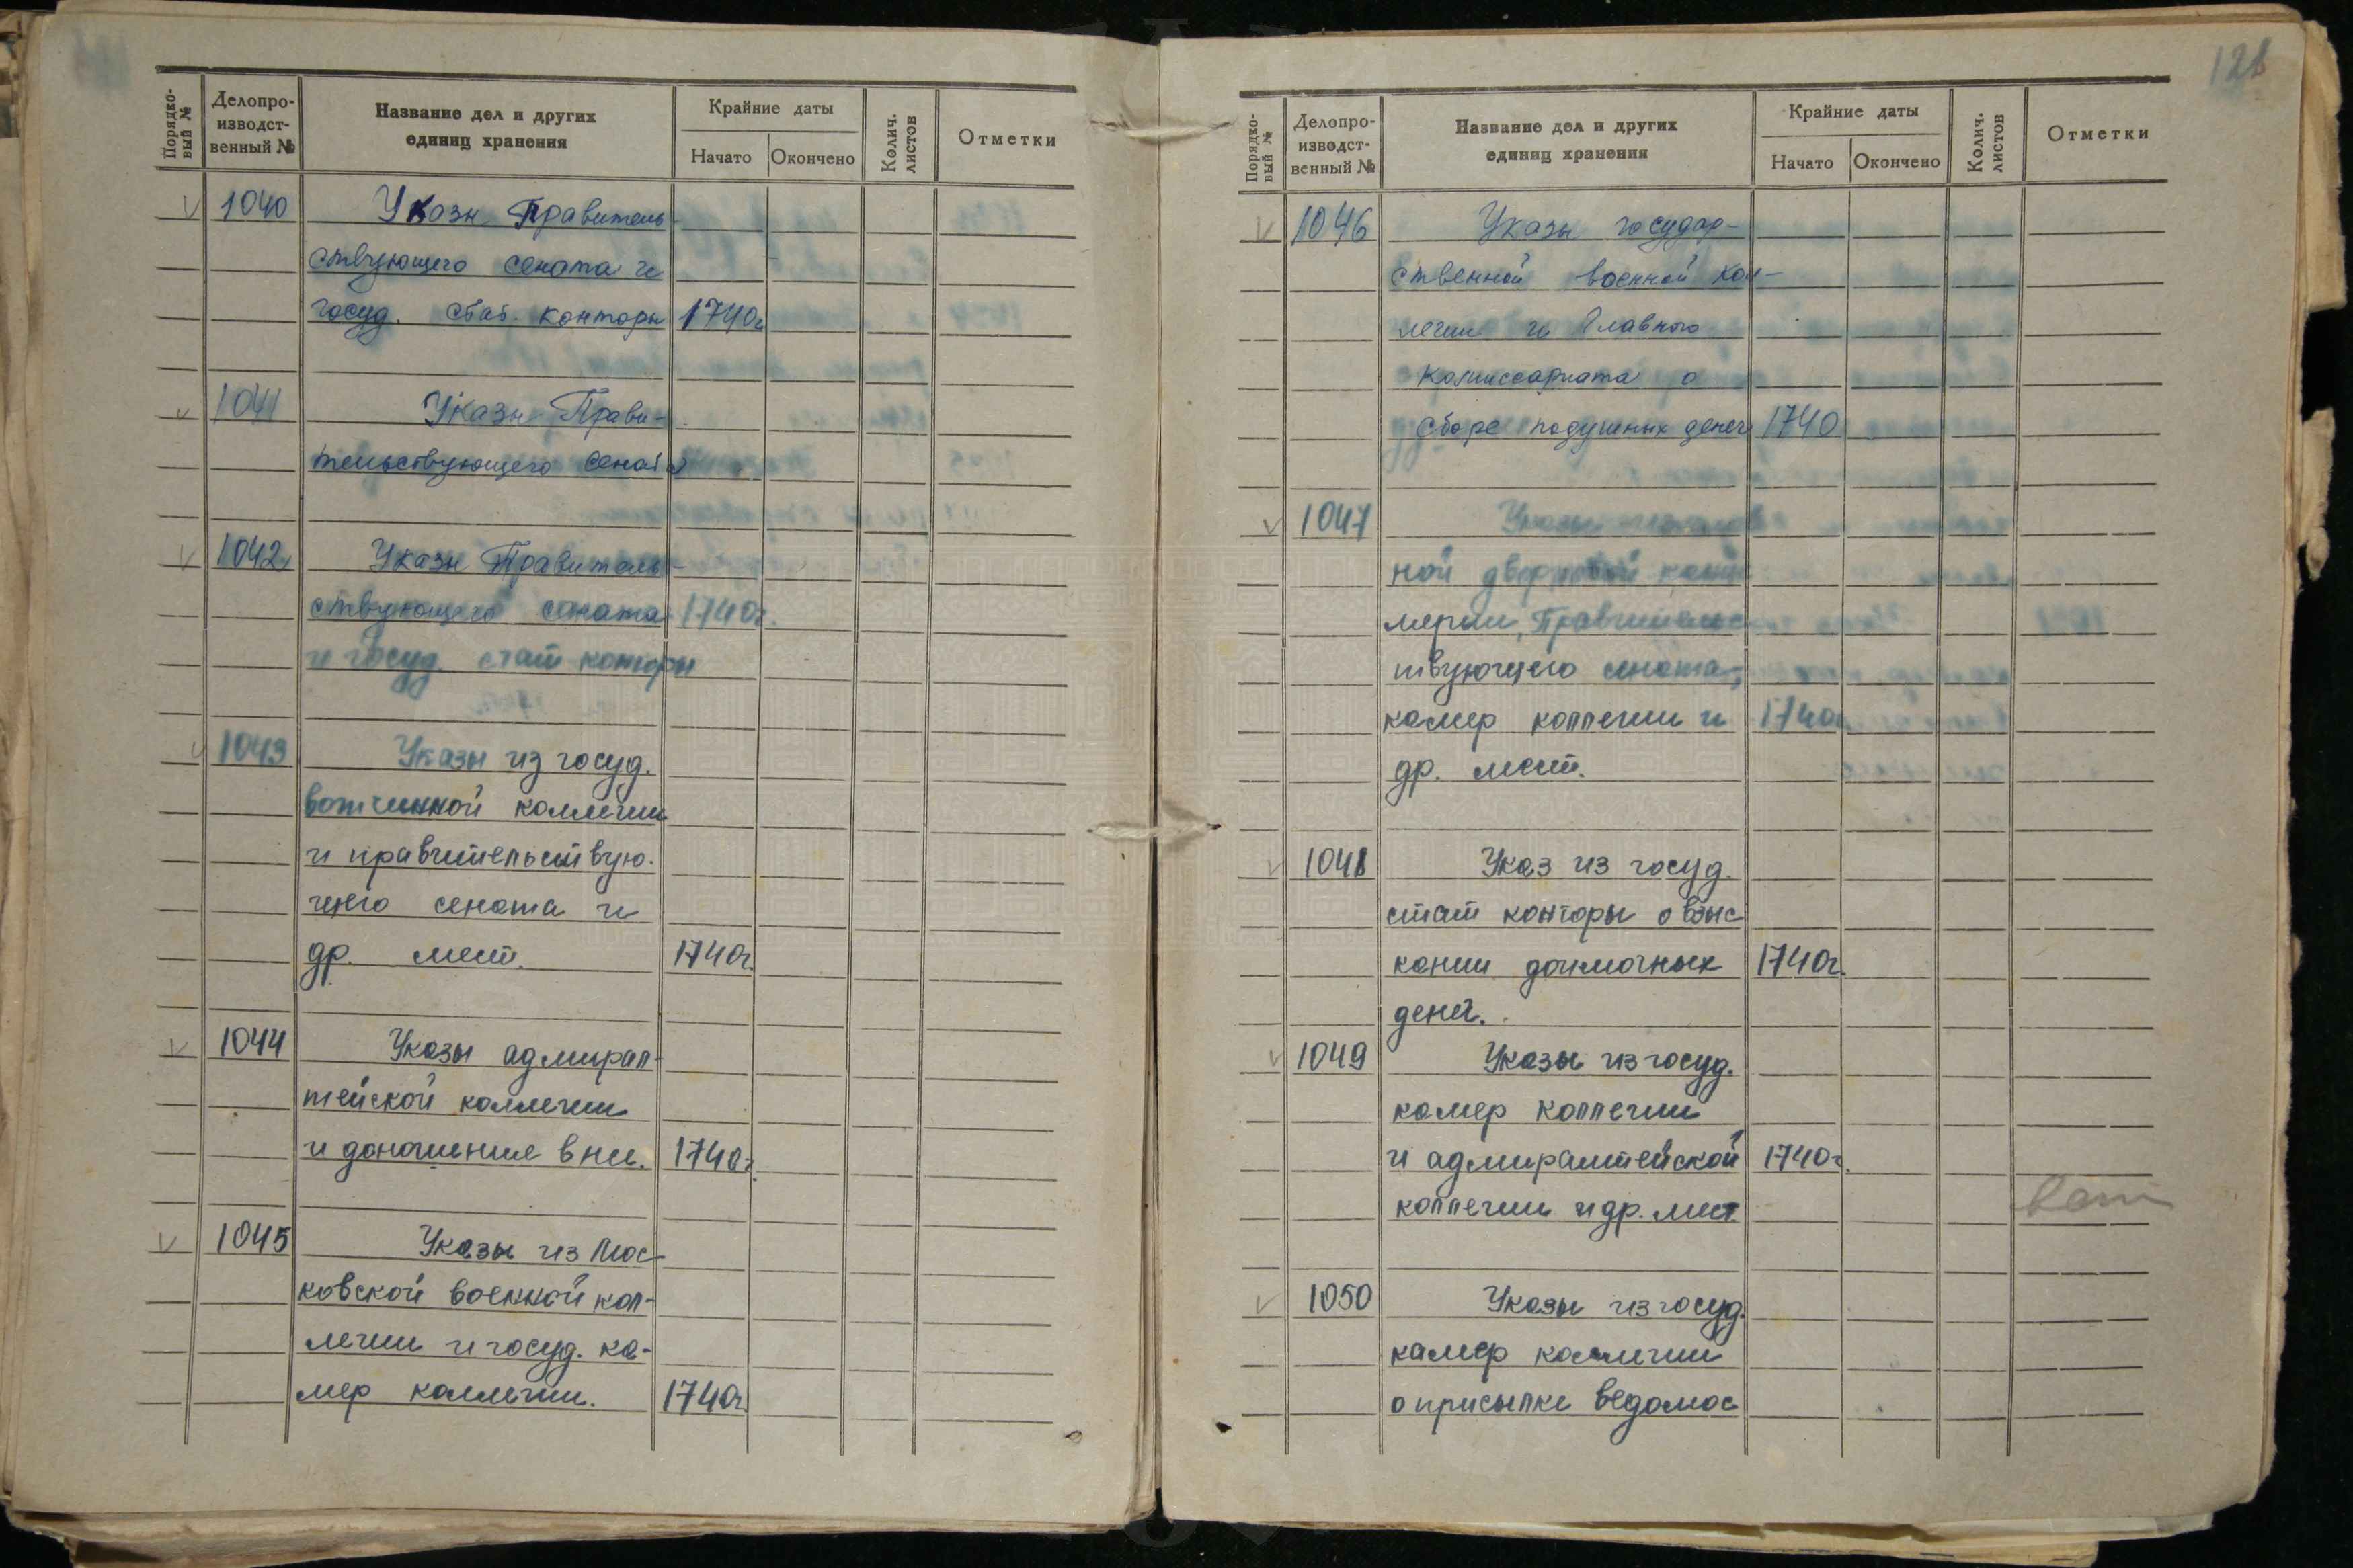 Порядко-
вый №
Делопро-
изводст-
венный №
Название дел и других
единиц хранения
Крайние даты
Начато
Окончено
Колич.
листов
Отметки
1040 Указы Правитель-
ствующего сената и
госуд. стат. конторы 1740г
1041 Указы Прави-
тельствующего сената
1042 Указы Правитель-
ствующего сената 1740г.
и госуд. стат конторы
1043 Указы из госуд.
вотчинной коллегии
и правительствую-
щего сената и
др. мест. 1740г.
1044 Указы адмирал-
тейской коллегии
и доношение в ние. 1740г.
1045 Указы из Мос-
ковской военной кол-
легии и госуд. ка-
мер коллегии. 1740г.
128
Порядко-
вый №
Делопро-
изводст-
венный №
Название дел и других
единиц хранения
Крайние даты
Начато
Окончено
Колич.
листов
Отметки
1046 Указы государ-
ственной военной кол-
легии и Главного
Комиссариата о
сборе подушных денег 1740
1047 Указы
ной дворцовой канце
мерии, Правительс
твующего сената,
камер коллегии и 1740г
др. мест.
1048 Указ из госуд.
стат конторы о взыс
кании доимочных 1740г.
денег.
1049 Указы из госуд.
камер коллегии
и адмиралтейской 1740г.
коллегии и др. мест.
1050 Указы из госуд.
камер коллегии
о присылке ведомос